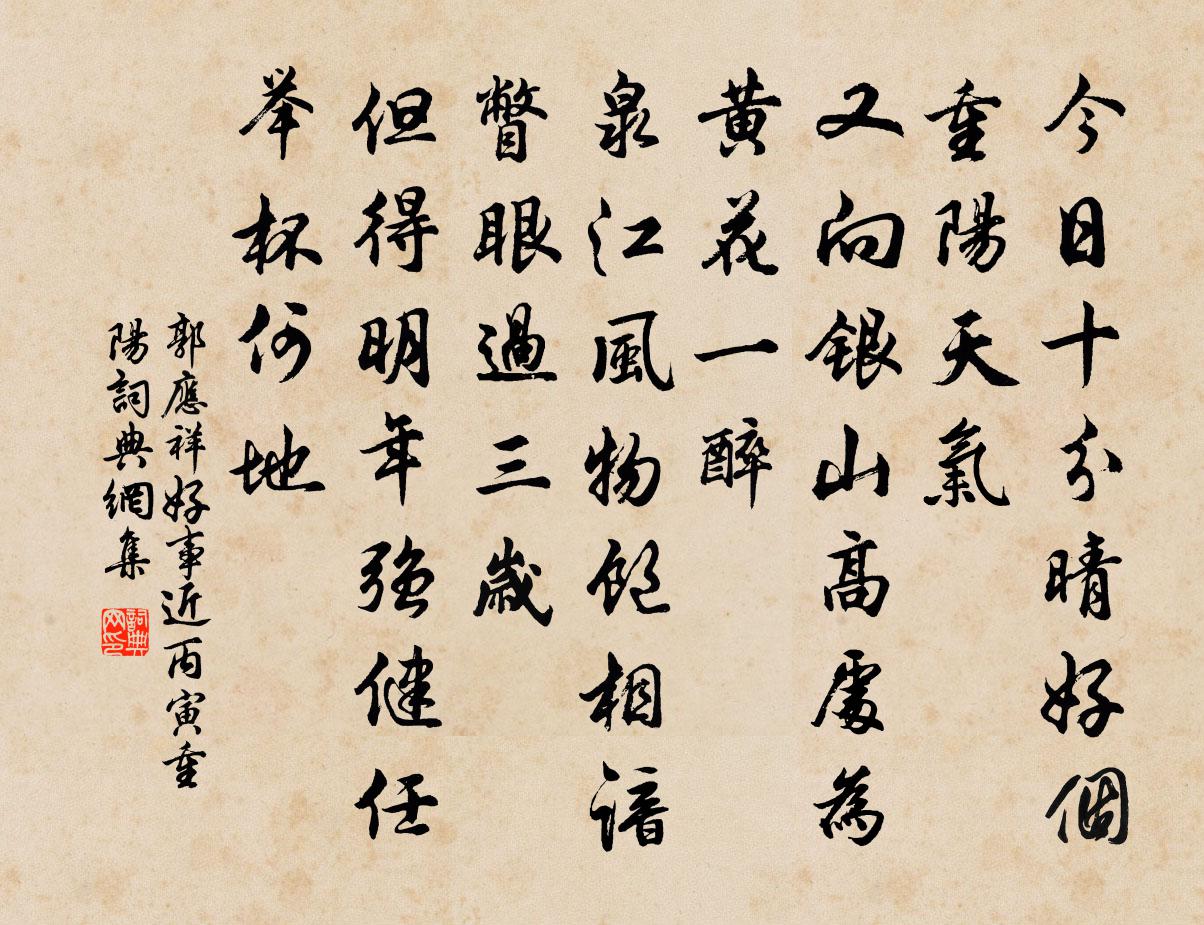 今日十分晴好個
重陽天氣
又向銀山高處為
黃花一醉
泉江風物飽相諳
瞥眼過三歲
但得明年強健任
举杯何地
郭應祥好事近丙寅重
陽詞典網集
詞典网印